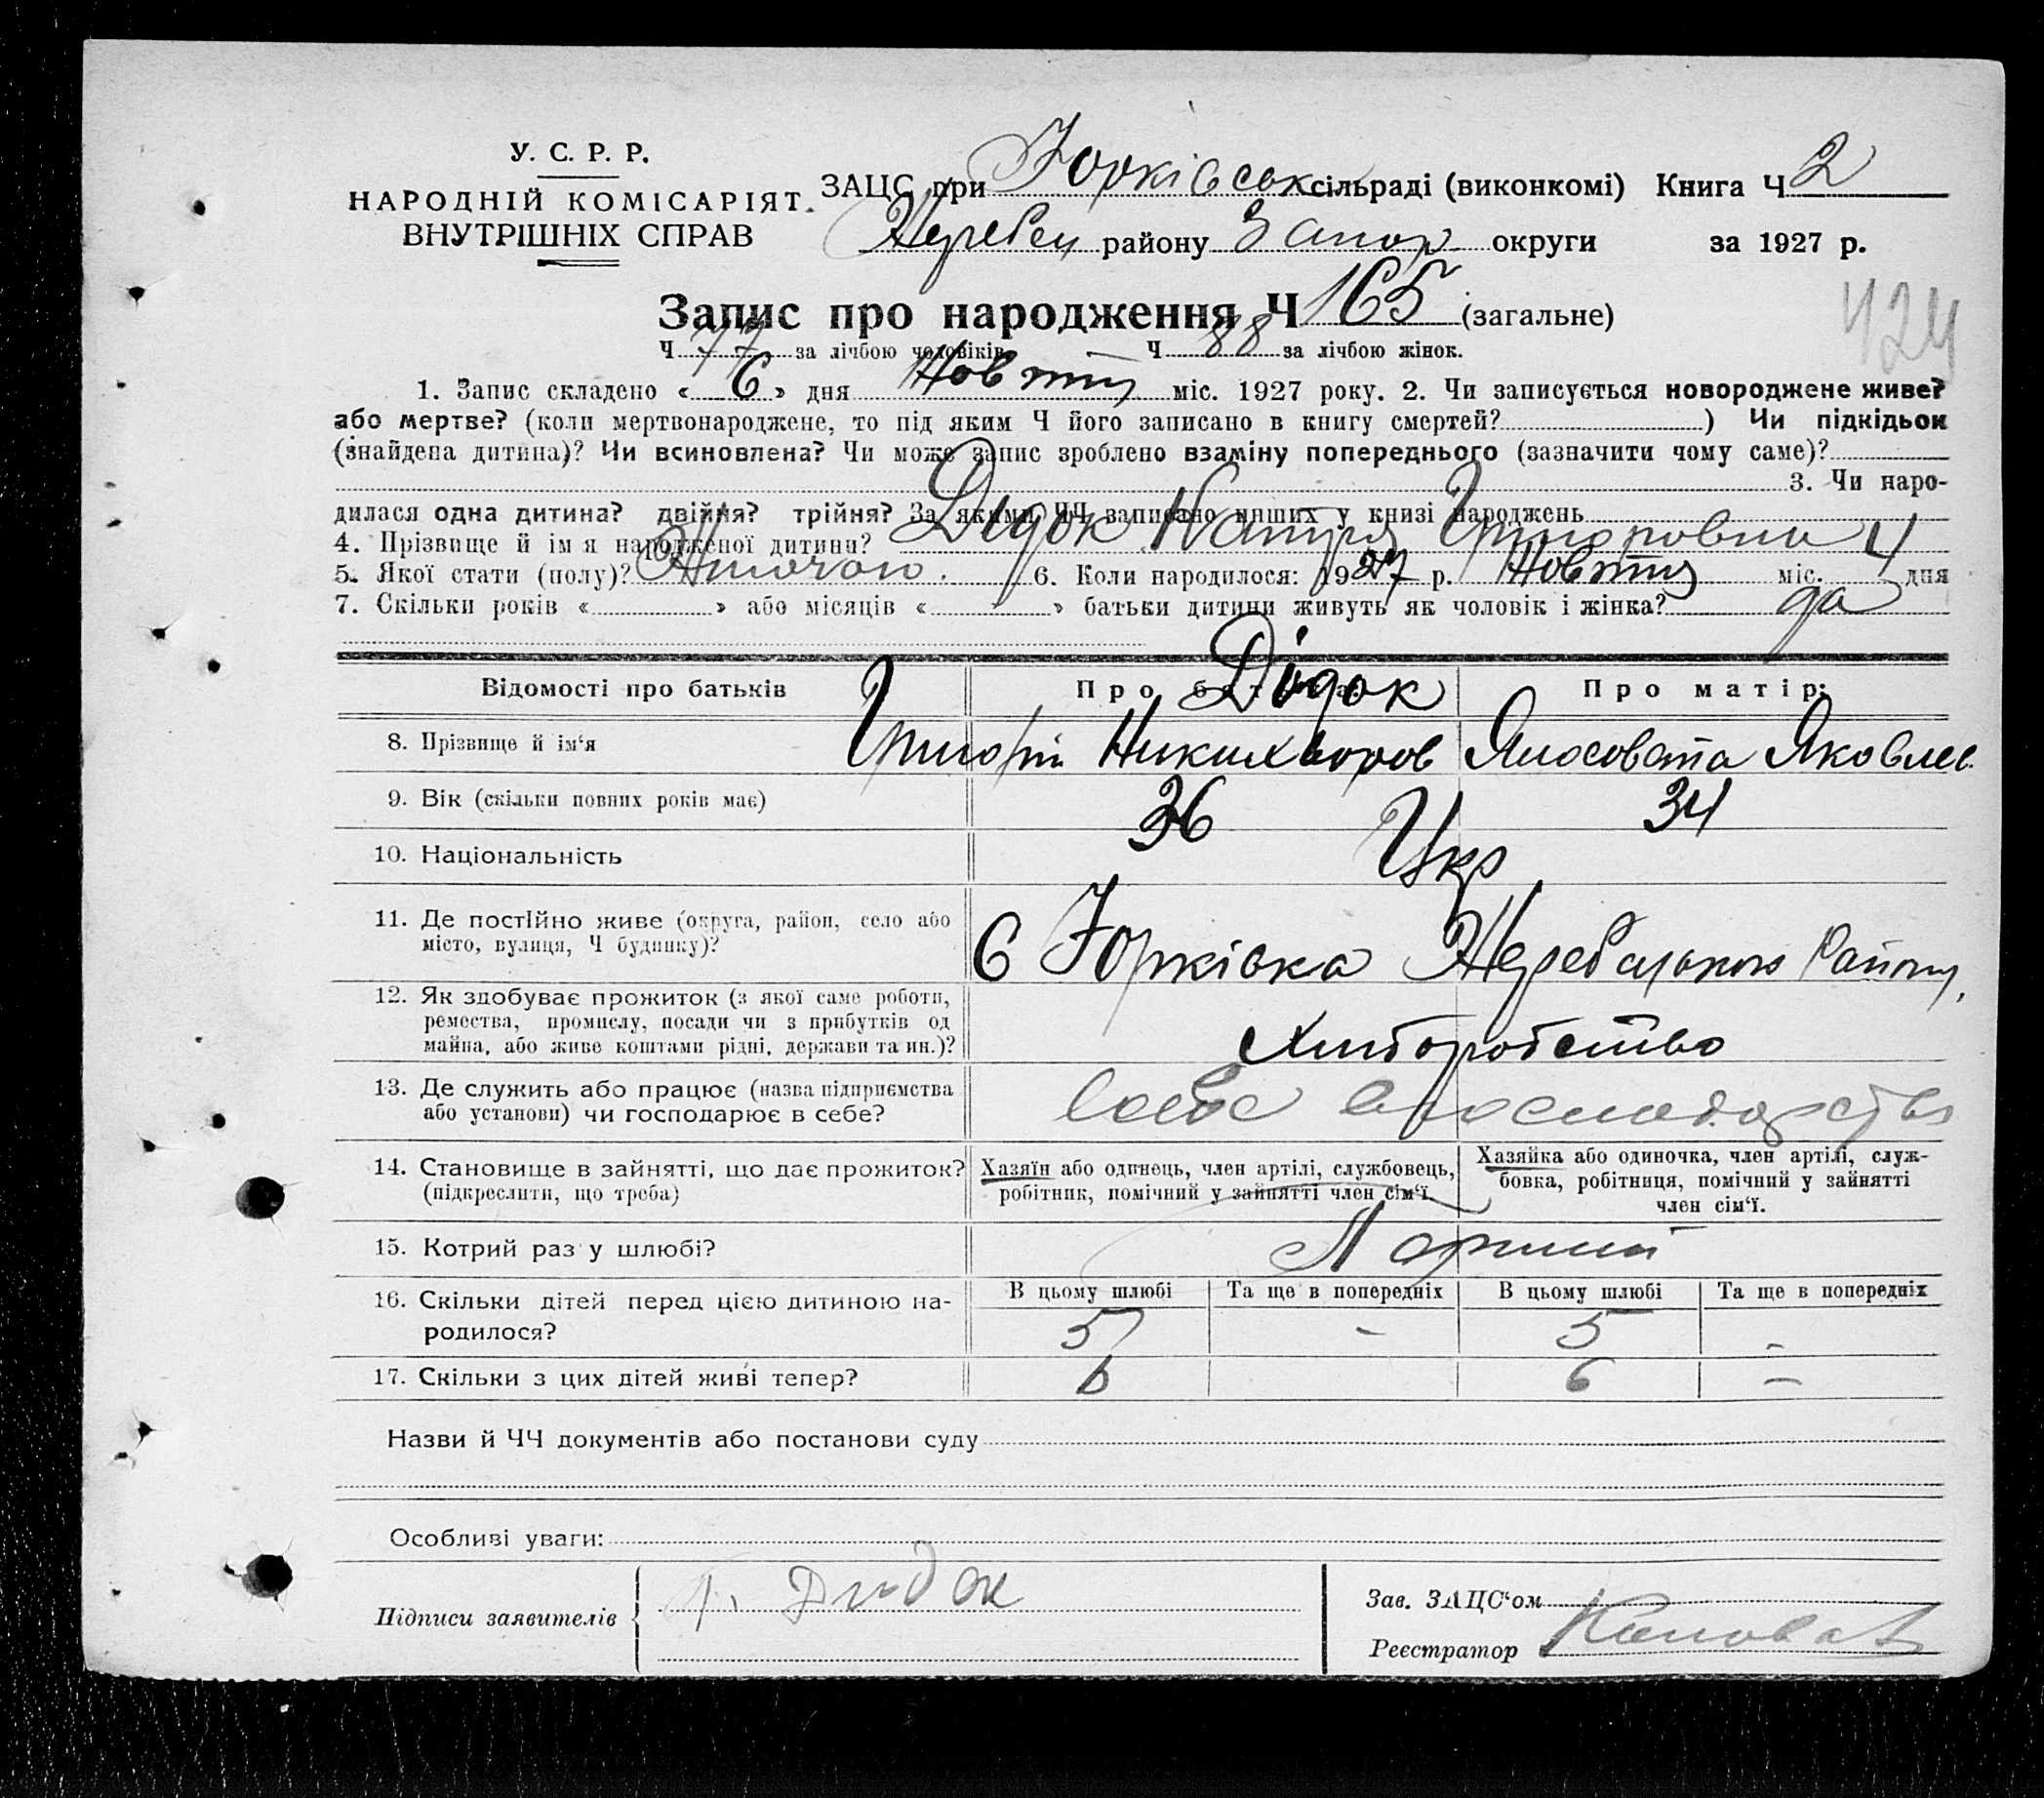 У. С. Р. Р.
НАРОДНІЙ КОМІСАРІЯТ
ВНУТРІШНІХ СПРАВ
ЗАЦС при Юрківськ сільраді (виконкомі) Книга Ч 2
Жеребец району Запор округи за 1927 р.
Запис про народження Ч 165 (загальне)
424
Ч 77 за лічбою чоловіків Ч 88 за лічбою жінок.
1. Запис складено « 6 » дня Новтня міс. 1927 року. 2. Чи записується новороджене живе?
або мертве? (коли мертвонароджене, то під яким Ч його записано в книгу смертей? ) Чи підкідьок
(знайдена дитина)? Чи всиновлена? Чи може запис зроблено взаміну попереднього (зазначити чому саме)?
3. Чи наро-
дилася одна дитина? двійня? трійня? За якими ЧЧ записано инших у книзі народжень
4. Прізвище й ім я народженої дитини? Дідок Григоровна
5. Якої стати (полу)? Жіночою. 6. Коли народилося: 1927 р. Новтня міс. 4 дня
7. Скільки років « » або місяців « » батьки дитини живуть як чоловік і жінка? да
Відомості про батьків Про батька: Про матір:
Дідок
8. Прізвище й ім‘я Григорій Никихворов Ялосовата Яковлев.
9. Вік (скільки повних років має) 36 34
10. Національність Укр
11. Де постійно живе (округа, район, село або
місто, вулиця, Ч будинку)? С Юрківка Жеребецького Району,
12. Як здобуває прожиток (з якої саме роботи,
ремества, промислу, посади чи з прибутків од
майна, або живе коштами рідні, держави та ин.)? Хліборобство
13. Де служить або працює (назва підприємства
або установи) чи господарює в себе? господарстві
14. Становище в зайнятті, що дає прожиток?
(підкреслити, що треба)
Хазяїн або одинець, член артілі, службовець,
робітник, помічний у зайнятті член сім‘ї.
Хазяйка або одиночка, член артілі, служ-
бовка, робітниця, помічний у зайнятті
член сім‘ї.
15. Котрий раз у шлюбі? Перший
16. Скільки дітей перед цією дитиною на-
родилося?
В цьому шлюбі Та ще в попередніх В цьому шлюбі Та ще в попередніх
5 - 5 -
17. Скільки з цих дітей живі тепер? 6 6 -
Назви й ЧЧ документів або постанови суду
Особливі уваги:
Підписи заявителів Г. Дидок
Зав. ЗАЦС‘ом
Реєстратор